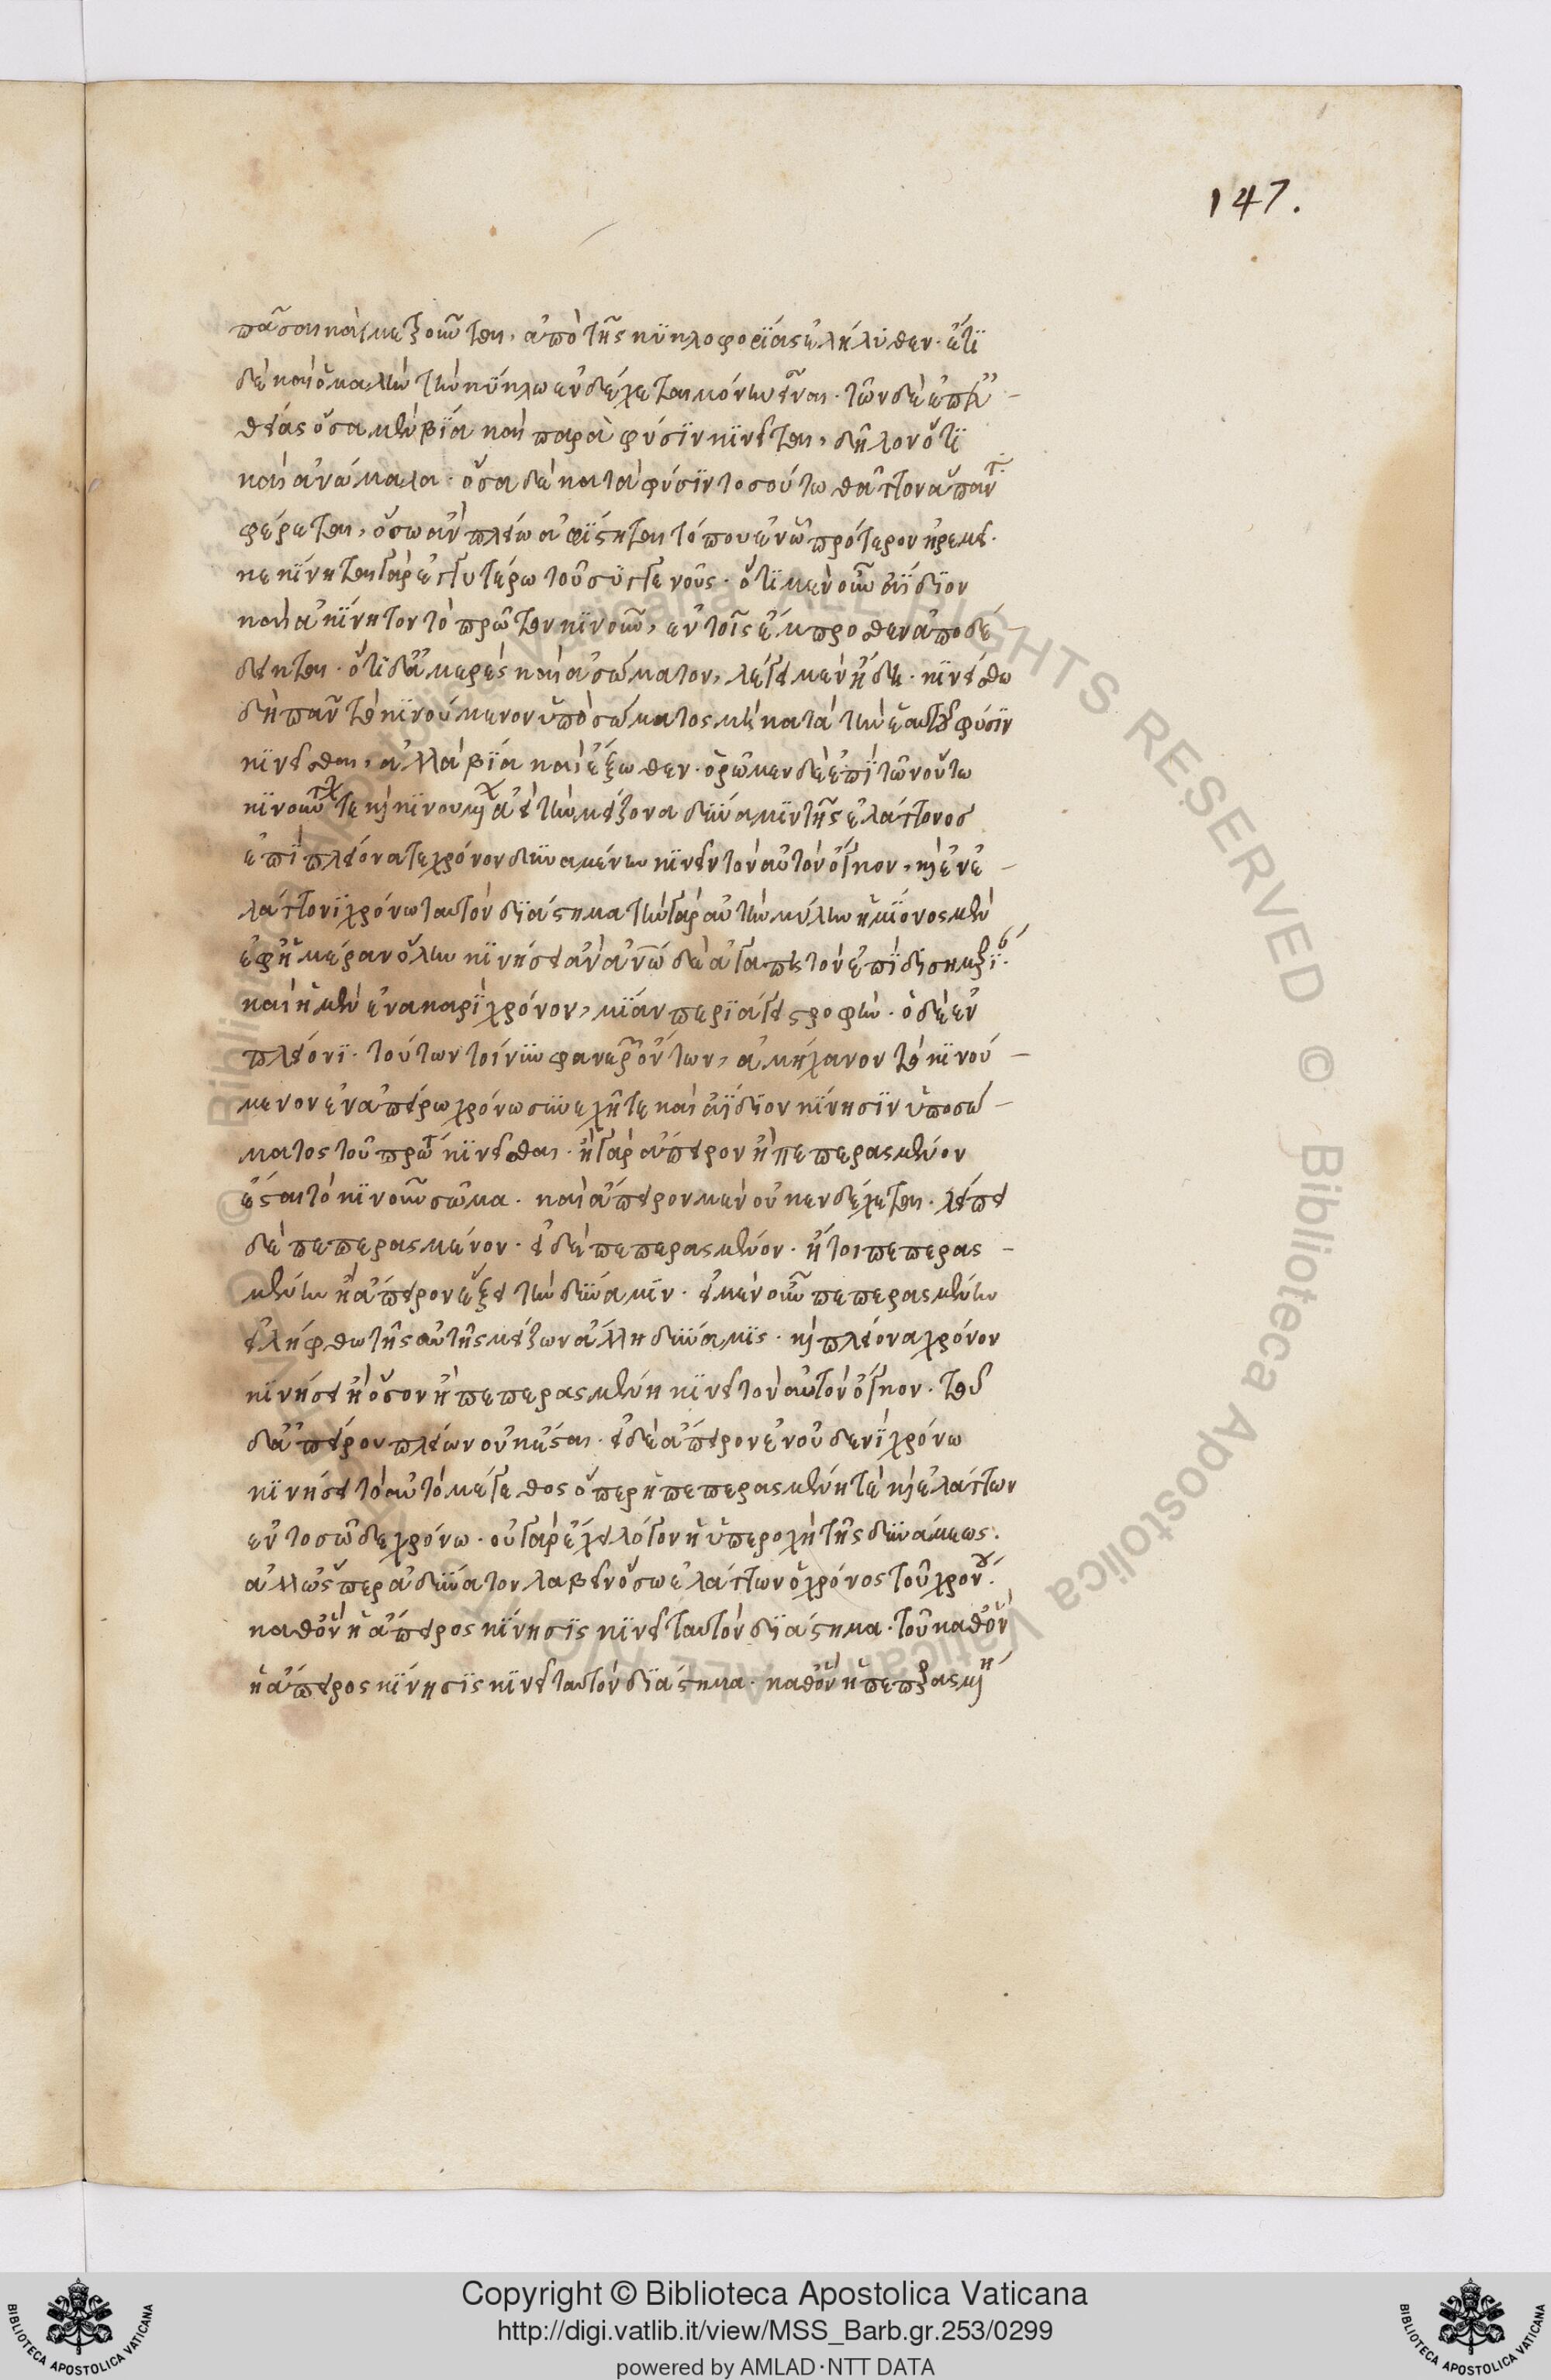 147.
πᾶσαι καὶ μετροῦνται, ἀπὸ τῆς κυκλοφορίας ἐλήλυθεν. ἔτι
δὲ καὶ ὁμαλὴν τὴν κύκλω ἐνδέχεται μόνην εἶναι. τῶν δὲ ἐπ᾽ εὐ-
θείας ὅσα μὲν βία καὶ παρὰ φύσιν κινεῖται, δῆλον ὅτι
καὶ ἀνώμαλα. ὅσα δὲ κατὰ φύσιν τοσούτω θᾶττον ἅπαντ
φέρεται, ὅσω ἂν πλείω ἀφίστηται τόπου ἐν ᾧ πρότερον ἠρέμει.
κεκίνηται γὰρ ἐγγυτέρω τοῦ συγγενοῦς. ὅτι μὲν οὖν ἀΐδιον
καὶ ἀκίνητον τὸ πρῶτον κινοῦν, ἐν τοῖς ἔμπροσθεν ἀποδέ-
δεικται. ὅτι δ᾽ ἀμερὲς καὶ ἀσώματον, λέγει μὲν ἤδη. κινείσθω
δὴ πᾶν τὸ κινούμενον ὑπὸ σώματος μὴ κατὰ τὴν ἑαυτοῦ φύσιν
κινεῖσθαι, ἀλλὰ βία καὶ ἔξωθεν. ὁρῶμεν δὲ ἐπὶ τῶν οὕτω
κινούντων τε καὶ κινουμένων ἀεὶ τὴν μείζονα δύναμιν τῆς ἐλάττονος
ἐπὶ πλείονά τε χρόνον δυναμένην κινεῖν τὸν αὐτὸν ὄγκον, καὶ ἐν ἐ-
λάττονι χρόνω ταυτὸν διάστημα τὴν γὰρ αὐτὴν μύλην ἡμίονος μὲν
ἐφ᾽ ἡμέραν ὅλην κινήσει ἂν ἄνθρωπος δὲ ἀγαπητὸν ἐπὶ δὶς ἡμι
καὶ ἡ μὲν ἐν ἀκαρεῖ χρόνον, μίαν περιάγει στροφήν. ὁ δὲ ἐν
πλείονι. τούτων τοίνυν φανερῶν ὄντων, ἀμήχανον τὸ κινού-
μενον ἐν ἀπείρω χρόνω συνεχῆ τε καὶ ἀΐδιον κίνησιν ὑπὸ σώ-
ματος τοῦ πρώτου κινεῖσθαι. ἢ γὰρ ἄπειρον ἢ πεπερασμένον
ἔσται τὸ κινοῦν σῶμα. καὶ ἄπειρον μὲν οὐκ ἐνδέχεται. λείπει
δὲ πεπερασμένον. εἰ δὲ πεπερασμένον. ἤτοι πεπερασ-
μένην ἢ ἄπειρον ἕξει τὴν δύναμιν. εἰ μὲν οὖν πεπερασμένην
εἰλήφθω τῆς αὐτῆς μείζων ἄλλη δύναμις. καὶ πλείονα χρόνον
κινήσει ἢ ὅσον ἡ πεπερασμένη κινεῖ τὸν αὐτὸν ὄγκον. τοῦ
δ᾽ ἀπείρου πλείων οὐκ ἔσται. εἰ δὲ ἄπειρον ἐν οὐδενὶ χρόνω
κινήσει τὸ αὐτὸ μέγεθος ὅπερ ἡ πεπερασμένη τὲ καὶ ἐλάττων
ἐν τοσῶδε χρόνω. οὐ γὰρ ἔχει λόγον ἡ ὑπεροχὴ τῆς δυνάμεως.
ἀλλ᾽ ὥσπερ ἀδύνατον λαβεῖν ὅσω ἐλάττων ὁ χρόνος τοῦ χρόνου.
καθ᾽ ὃν ἡ ἄπειρος κίνησις κινεῖ ταυτὸν διάστημα. τοῦ καθ᾽ ὃν
ἡ ἄπειρος κίνησις κινεῖ ταυτὸν διάστημα. καθ᾽ ὃν ἡ πεπερασμένη
Copyright © Biblioteca Apostolica Vaticana
http://digi.vatlib.it/view/MSS_Barb.gr.253/0299
powered by AMLAD·NTT DATA